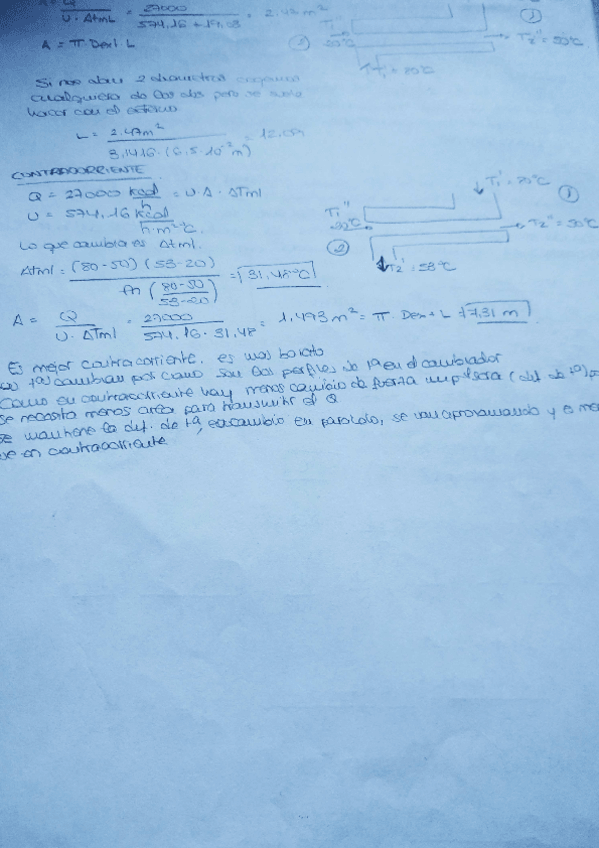 U · ΔtmL
27000
574,16 + 19.03
= 2.47 m²
A = π Dext · L
Si nos dan 2 diametros
cualquiera de los dos pero se suele
hacer con el externo
L = 2.47m² / 3,1416 · (6,5 · 10⁻²m) = 12,09m
CONTRACORRIENTE
Q = 27000 kcal/h = U · A · ΔTml
U = 574,16 kcal/h m²ºC
Lo que cambia es Δtml.
Δtml = (80-50)(53-20) / ln (80-50/53-20) = 31,48ºC
A = Q / U · ΔTml = 27000 / 574,16 · 31,48 = 1,493 m² = π · Dex + L = 7,31 m
T1''
T2'' = 50ºC
T1' = 80ºC
①
T1' = 70ºC
①
T1''
T2'' = 50ºC
②
T2' = 53ºC
Es mejor contracorriente. es mas barato
cambian son los perfiles de tª en el cambiador
Como en contracorriente hay menos cambio de fuerza impulsora (dif. de tª)
se necesita menos area para transmitir el Q
se mantiene la dif. de tª, en cambio en paralelo, se van aproximando y es
en contracorriente